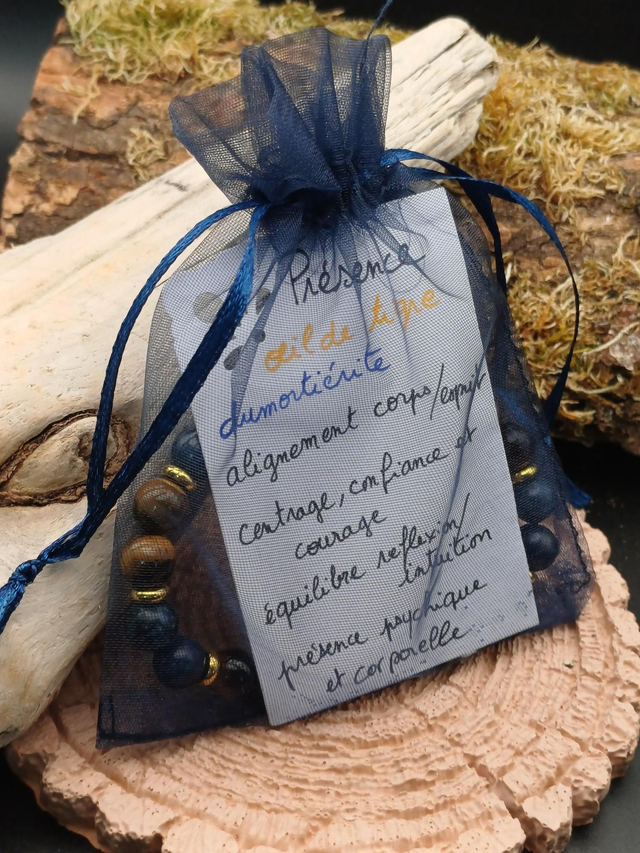 Présence
œil de tigre
dumortiérite
alignement corps/esprit
centrage, confiance et
courage
équilibre reflexion/
intuition
présence psychique
et corporelle